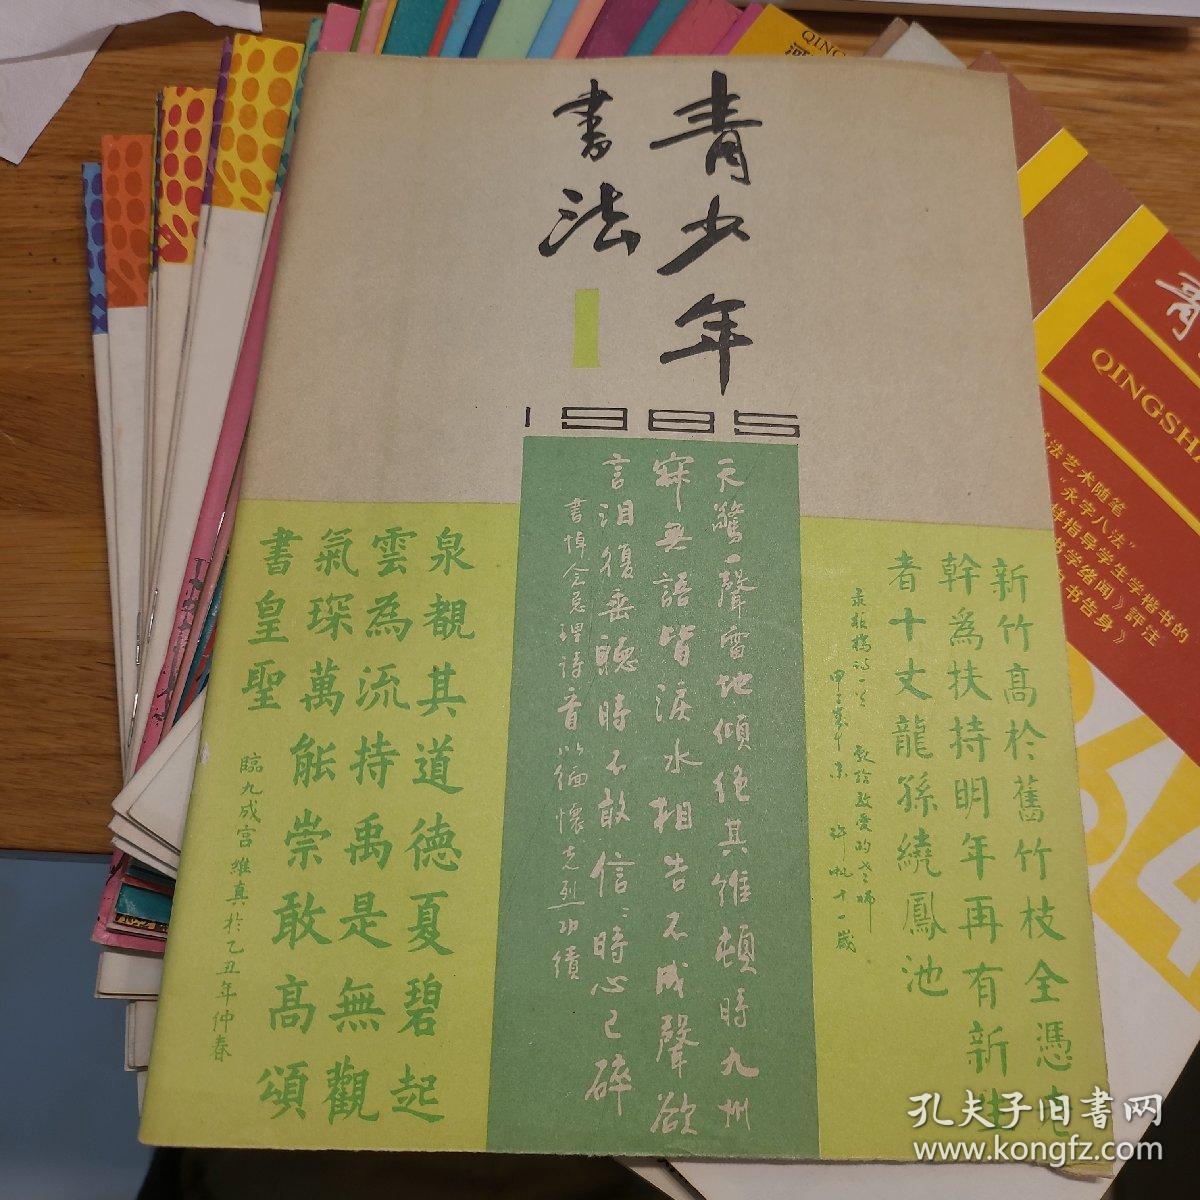 青少年
書法
1
1985
新竹高於舊竹枝全憑老
幹為扶持明年再有新生
者十丈龍孫繞鳳池
天驚一聲雷地傾絕其維頓時九州
寂無語皆淚水相告不成聲欲
言泪復垂聽時不敢信信時心已碎
書悼念總理詩音以緬懷先烈功績
泉覩其道德夏碧起
雲為流持禹是無觀
氣琛萬能崇敢高頌
書皇聖
臨九成宮維真於乙丑年仲春
QINGSHA
法艺术随笔
"永字八法"
样指导学生学楷书的
书学绪闻》評注
书告身》
QING
河
孔夫子旧书网
www.kongfz.com